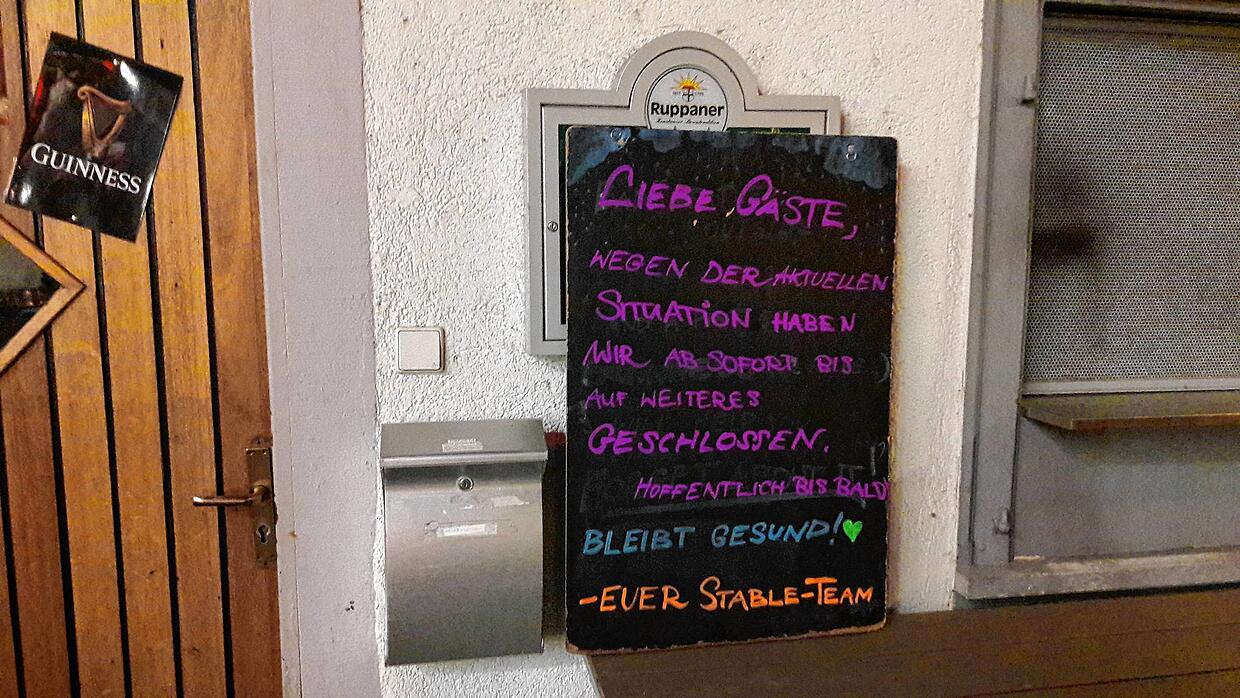 GUINNESS
Ruppaner
LIEBE GÄSTE,
WEGEN DER AKTUELLEN
SITUATION HABEN
WIR AB SOFORT BIS
AUF WEITERES
GESCHLOSSEN.
HOFFENTLICH BIS BALD
BLEIBT GESUND!
-EUER STABLE-TEAM